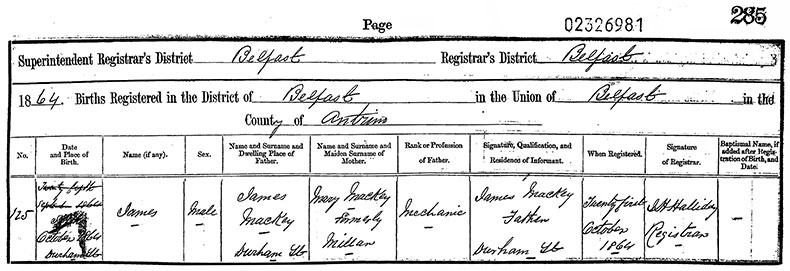 Page 02326981 285
Superintendent Registrar's District Belfast Registrar's District Belfast
1864. Births Registered in the District of Belfast in the Union of Belfast in the
County of Antrim
No. Date and Place of Birth. Name (if any). Sex. Name and Surname and Dwelling Place of Father. Name and Surname and Maiden Surname of Mother. Rank or Profession of Father. Signature, Qualification, and Residence of Informant. When Registered. Signature of Registrar. Baptismal Name, if added after Registration of Birth, and Date.
Twenty fifth
James James Mary Mackey James Mackey Twenty first
125 Male Mackey formerly Mechanic Father October Halliday —
October 1864 Durham St Millan Durham St 1864 Registrar
Durham St